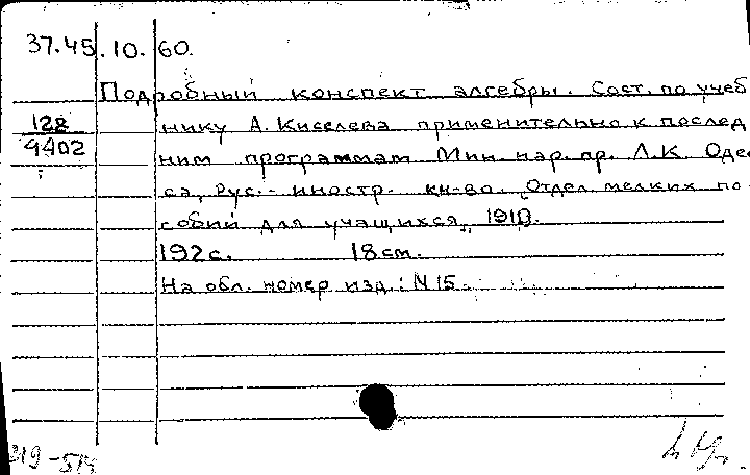 37.45.10.60.
Подробный конспект алгебры. Сост. по учеб
128
нику А. Киселева применительно к послед
9402
ним программам Мин. нар. пр. Л.К. Одес
са, Рус.-иностр. кн-во. Отдел мелких по-
собий для учащихся, 1910.
192с. 18см.
На обл. номер изд.: N 15